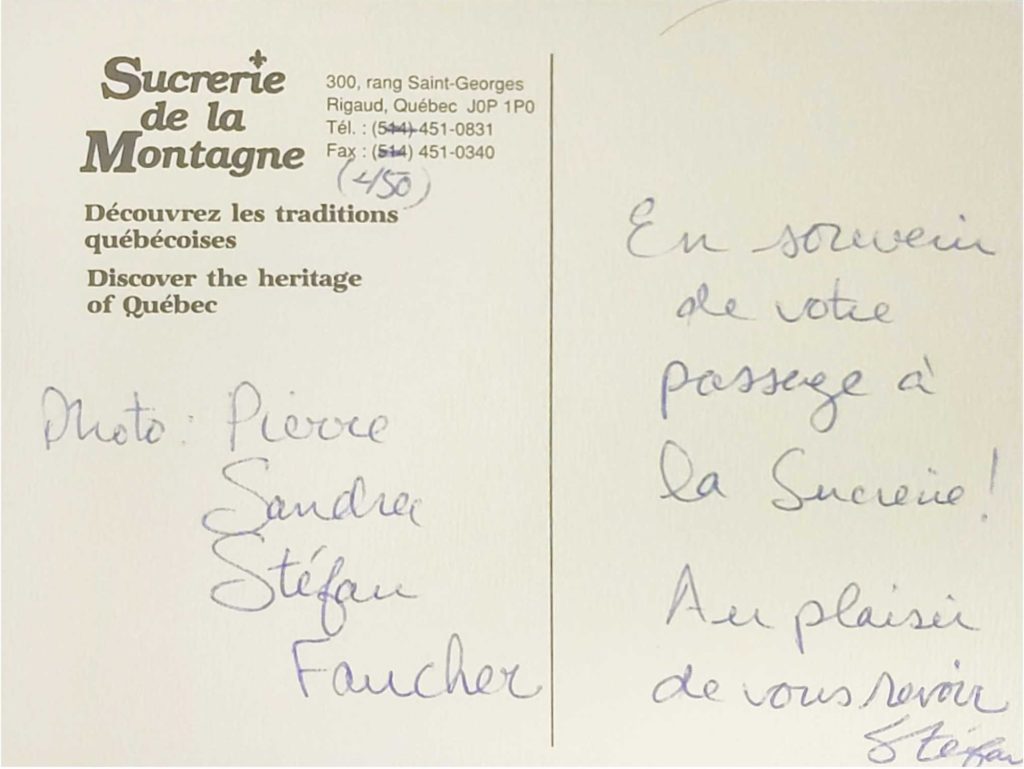 Sucrerie
de la
Montagne
300, rang Saint-Georges
Rigaud, Québec J0P 1P0
Tél. : (514) 451-0831
Fax : (514) 451-0340
(450)
Découvrez les traditions
québécoises
Discover the heritage
of Québec
Photo : Pierre
Sandra
Stéfan
Faucher
En souvenir
de votre
passage à
la Sucrerie!
Au plaisir
de vous revoir
Stéfan